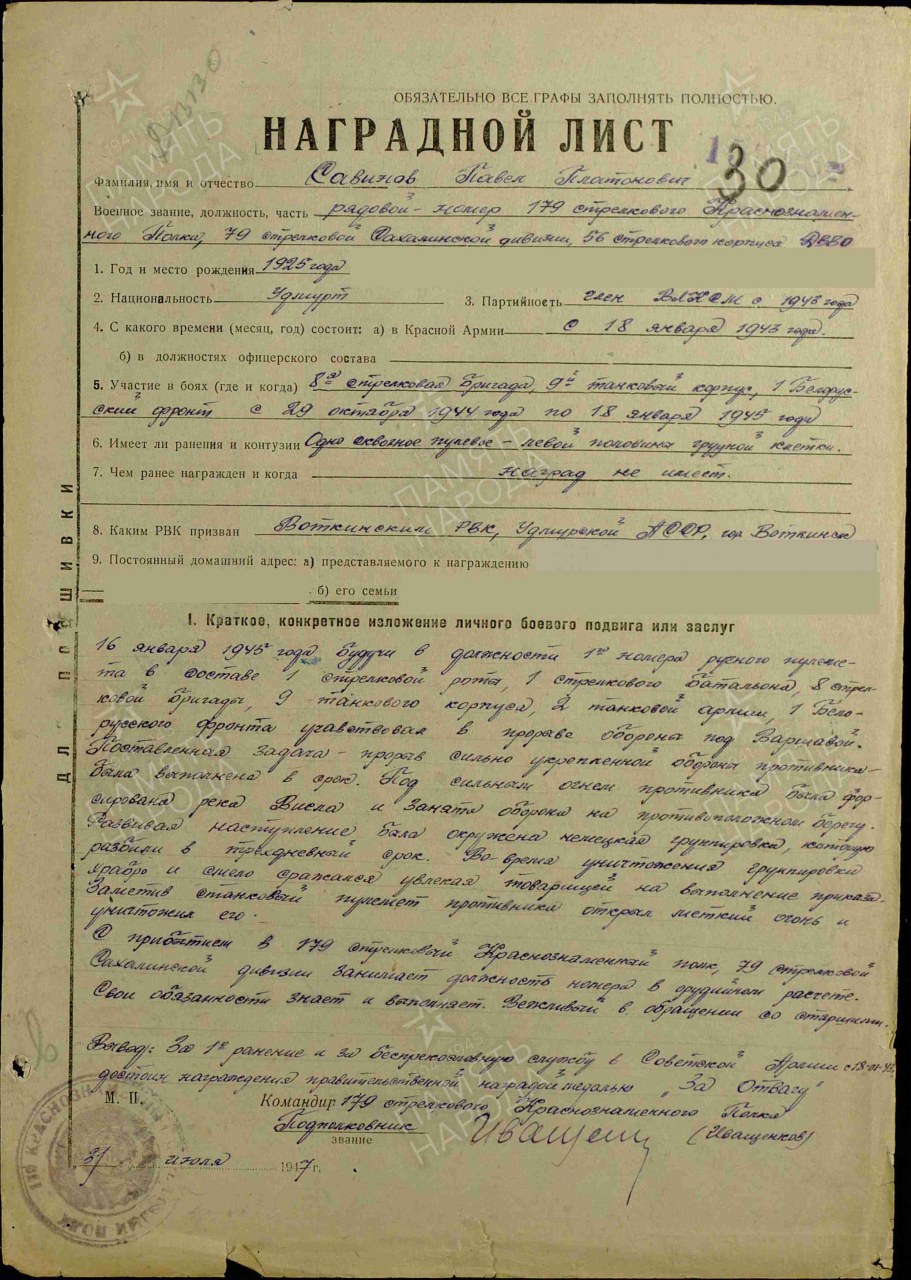 ОБЯЗАТЕЛЬНО ВСЕ ГРАФЫ ЗАПОЛНЯТЬ ПОЛНОСТЬЮ.
НАГРАДНОЙ ЛИСТ
30
Фамилия, имя и отчество Савинов Павел Платонович
Военное звание, должность, часть рядовой - номер 179 стрелкового Краснознамен-
ного Полка, 79 стрелковой Сахалинской дивизии, 56 стрелкового корпуса
1. Год и место рождения 1925 года
2. Национальность Удмурт 3. Партийность член ВЛКСМ с 1943 года
4. С какого времени (месяц, год) состоит: а) в Красной Армии с 18 января 1943 года.
б) в должностях офицерского состава
5. Участие в боях (где и когда) 8я стрелковая бригада, 9й танковый корпус, 1 Белорус-
ский фронт с 29 октября 1944 года по 18 января 1945 года
6. Имеет ли ранения и контузии Одно сквозное пулевое - левой половины грудной клетки.
7. Чем ранее награжден и когда наград не имеет.
8. Каким РВК призван Воткинским РВК, Удмурской АССР, гор Воткинск
9. Постоянный домашний адрес: а) представляемого к награждению
б) его семьи
ДЛ П ШИВКИ
I. Краткое, конкретное изложение личного боевого подвига или заслуг
16 января 1945 года будучи в должности 1го номера ручного пулеме-
та в составе 1 стрелковой роты, 1 стрелкового батальона, 8 стрел-
ковой бригады, 9 танкового корпуса, 2 танковой армии, 1 Бело-
русского фронта учавствовал в прорыве обороны под Варшавой.
Поставленная задача - прорыв сильно укрепленной обороны противника -
была выполнена в срок. Под сильным огнем противника была фор-
сирована река Висла и занята оборона на противоположном берегу.
Развивая наступление была окружена немецкая группировка, которую
разбили в трехдневный срок. Во-время уничтожения группировки
храбро и смело сражался увлекая товарищей на выполнение приказа.
Заметив станковый пулемет противника открыл меткий огонь и
уничтожил его.
С прибытием в 179 стрелковый Краснознаменный полк, 79 стрелковой
Сахалинской дивизии занимает должность номера в орудийном расчете.
Свои обязанности знает и выполняет. Вежливый в обращении со старшими.
Вывод: За 1е ранение и за беспрекословную службу в Советской Армии
достоин награждения правительственной наградой медалью "За Отвагу"
М. П. Командир 179 стрелкового Краснознаменного Полка
Подполковник (Иващенков)
звание
31 июля 1947 г.
ПАМЯТЬ НАРОДА